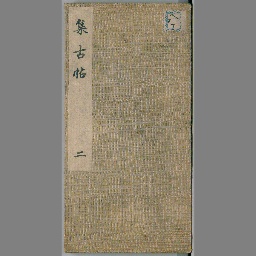 集古帖 二